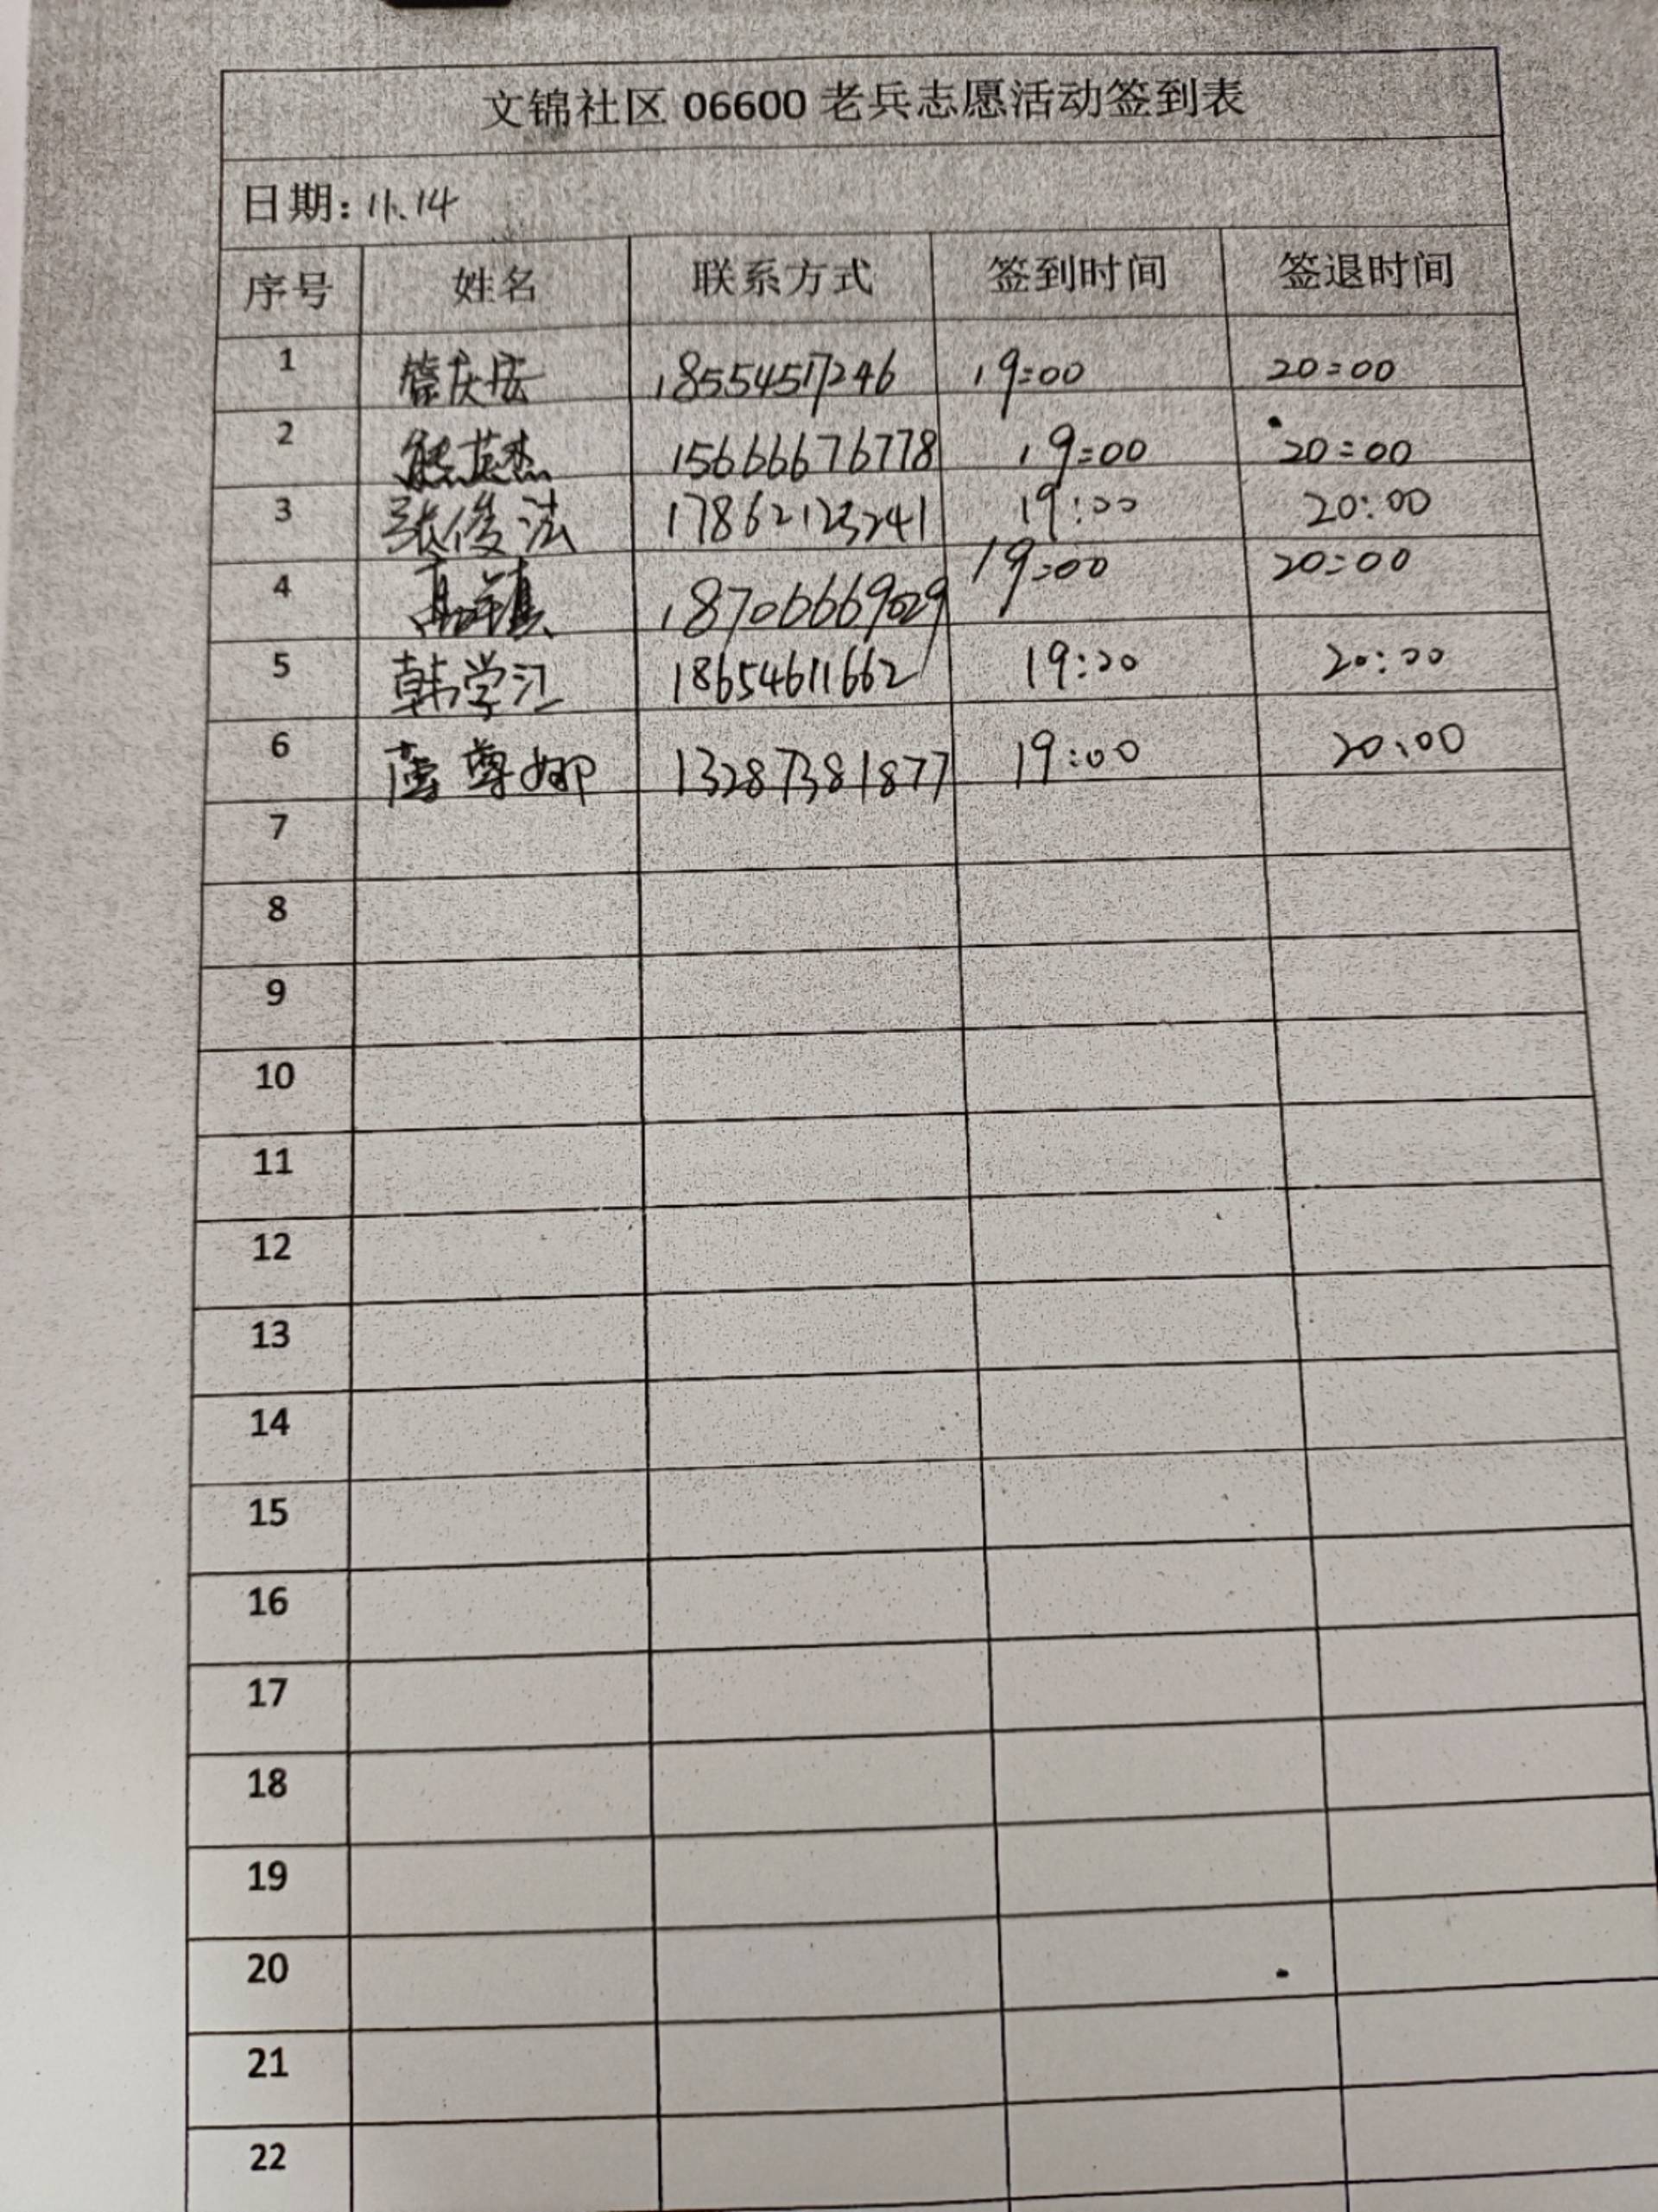 文锦社区 06600 老兵志愿活动签到表
日期: 11.14
序号 姓名 联系方式 签到时间 签退时间
1 18554517246 19:00 20:00
2 15666676778 19:00 20:00
3 张俊法 17862123241 19:00 20:00
4 18706669029 19:00 20:00
5 韩学江 18654611662 19:00 20:00
6 13287381877 19:00 20:00
7
8
9
10
11
12
13
14
15
16
17
18
19
20
21
22